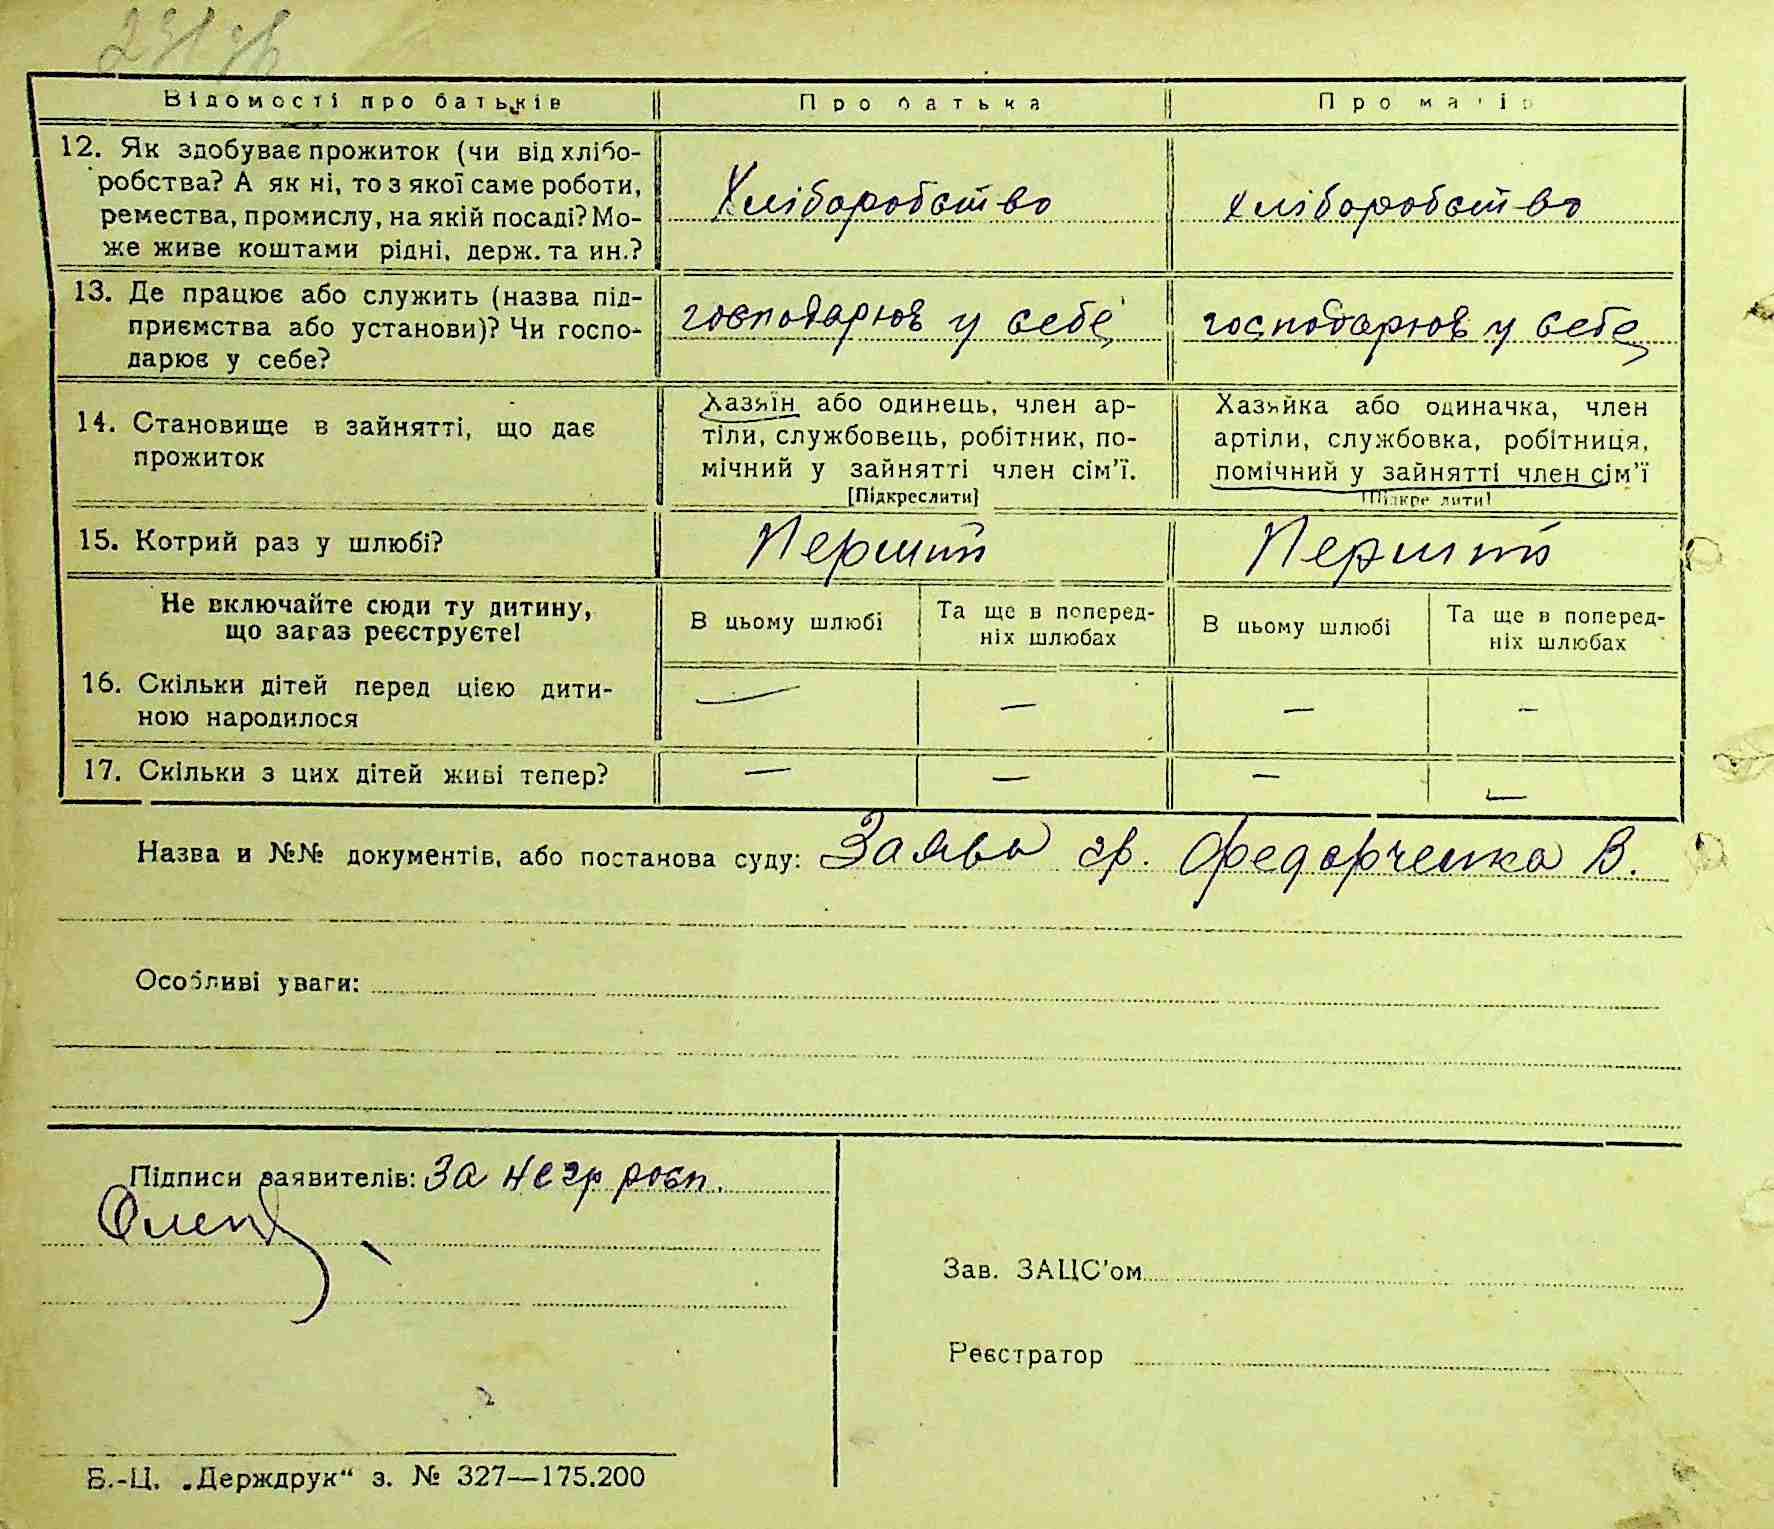 Відомості про батьків Про батька Про матір
12. Як здобуває прожиток (чи від хлібо-
робства? А як ні, то з якої саме роботи,
ремества, промислу, на якій посаді? Мо-
же живе коштами рідні, держ. та ин.?
Хліборобство
хліборобство
13. Де працює або служить (назва під-
приємства або установи)? Чи госпо-
дарює у себе?
господарює у себе
господарює у себе
14. Становище в зайнятті, що дає
прожиток
Хазяїн або одинець, член ар-
тіли, службовець, робітник, по-
мічний у зайнятті член сім'ї.
[Підкреслити]
Хазяйка або одиначка, член
артіли, службовка, робітниця,
помічний у зайнятті член сім'ї
[Підкреслити]
15. Котрий раз у шлюбі?
Перший
Перший
Не включайте сюди ту дитину,
що зараз реєструєте!
В цьому шлюбі
Та ще в поперед-
ніх шлюбах
В цьому шлюбі
Та ще в поперед-
ніх шлюбах
16. Скільки дітей перед цією дити-
ною народилося
— — — —
17. Скільки з цих дітей живі тепер?
— — — —
Назва и №№ документів, або постанова суду: Заява гр. Федорченка В.
Особливі уваги:
Підписи заявителів: За негр росп.
Зав. ЗАЦС'ом
Реєстратор
Б.-Ц. „Держдрук“ з. № 327—175.200